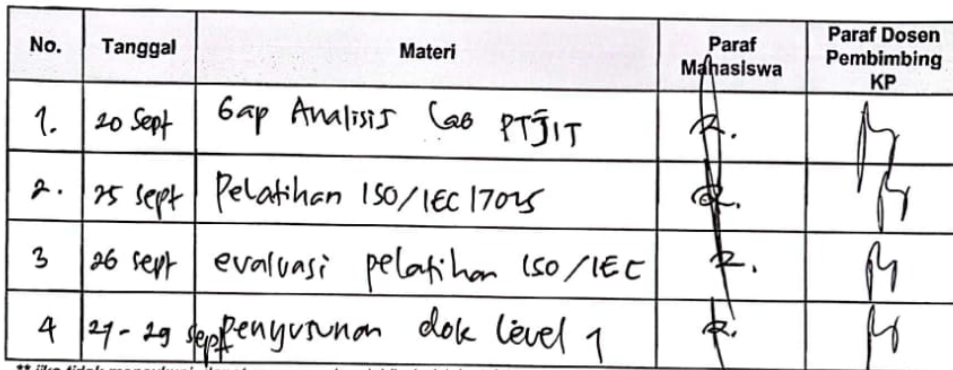 No. Tanggal Materi Paraf Mahasiswa Paraf Dosen Pembimbing KP
1. 20 Sept Gap Analisis Lab PTJIT
2. 25 sept Pelatihan ISO/IEC 17025
3 26 sept evaluasi pelatihan ISO/IEC
4 27-29 sept Penyusunan dok level 1
** jika tidak